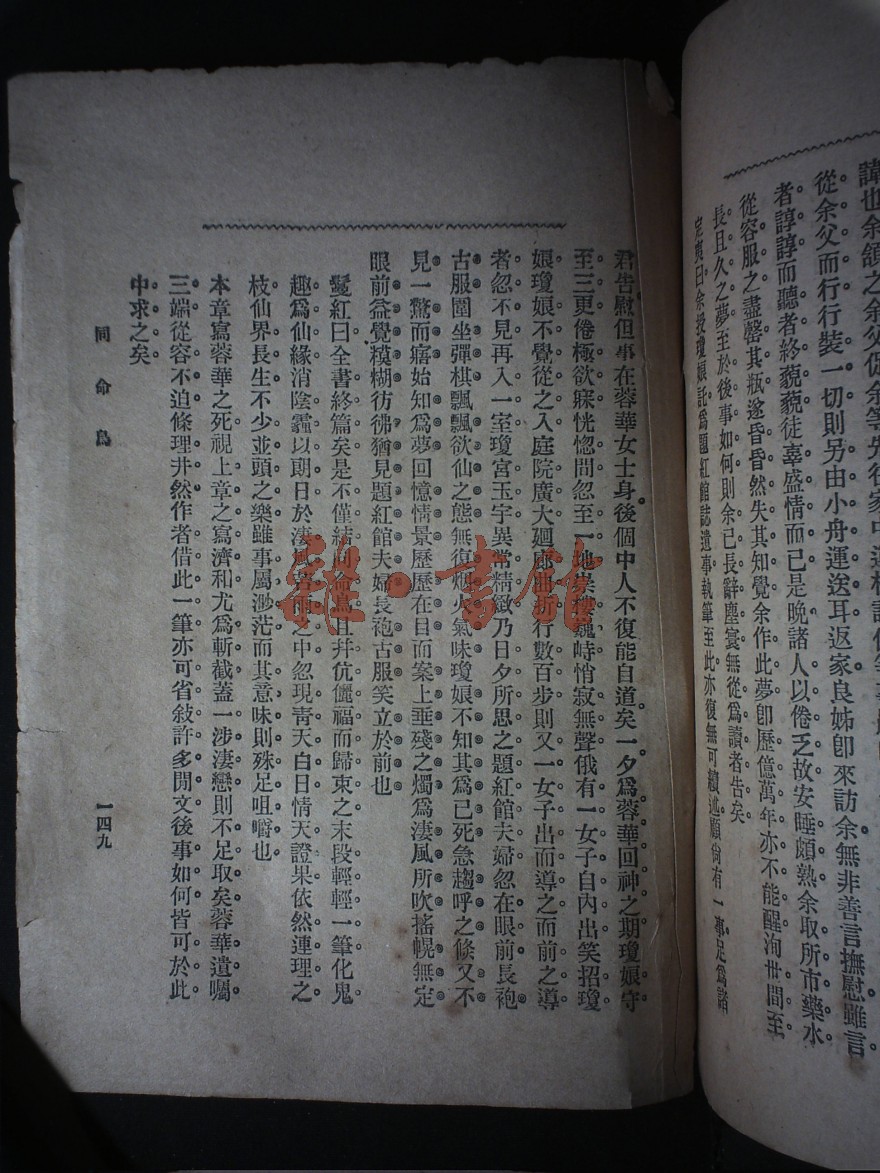 諱也余頷之余父促余等先往家中
從余父而行行裝一切則另由小舟運送耳返家良姊卽來訪余無非善言撫慰雖言
者諄諄而聽者終藐藐徒辜盛情而已是晚諸人以倦乏故安睡頗熟余取所市藥水
從容服之盡罄其瓶遂昏昏然失其知覺余作此夢卽歷億萬年亦不能醒洵世間至
長且久之夢至於後事如何則余已長辭塵寰無從爲讀者告矣
定夷曰余授瓊娘託爲題紅館誌遺事執筆至此亦復無可續述顧尙有一事足爲諸
君告慰但事在蓉華女士身後個中人不復能自道矣一夕爲蓉華回神之期瓊娘守
至三更倦極欲寐恍惚間忽至一地崇樓巍峙悄寂無聲俄有一女子自內出笑招瓊
娘瓊娘不覺從之入庭院廣大迴廊曲折行數百步則又一女子出而導之而前之導
者忽不見再入一室瓊宮玉宇異常精緻乃日夕所思之題紅館夫婦忽在眼前長袍
古服圍坐彈棋飄飄欲仙之態無復烟火氣味瓊娘不知其爲已死急趨呼之倏又不
見一驚而寤始知爲夢回憶情景歷歷在目而案上垂殘之燭爲淒風所吹搖幌無定
眼前益覺糢糊彷彿猶見題紅館夫婦長袍古服笑立於前也
鬘紅曰全書終篇矣是不僅結同命鳥且幷伉儷福而歸束之末段輕輕一筆化鬼
趣爲仙緣消陰霾以朗日於淒風苦雨之中忽現靑天白日情天證果依然連理之
枝仙界長生不少並頭之樂雖事屬渺茫而其意味則殊足咀嚼也
本章寫蓉華之死視上章之寫濟和尤爲斬截蓋一涉淒戀則不足取矣蓉華遺囑
三端從容不迫條理井然作者借此一筆亦可省敍許多閒文後事如何皆可於此
中求之矣
同命鳥
一四九
雜·書館